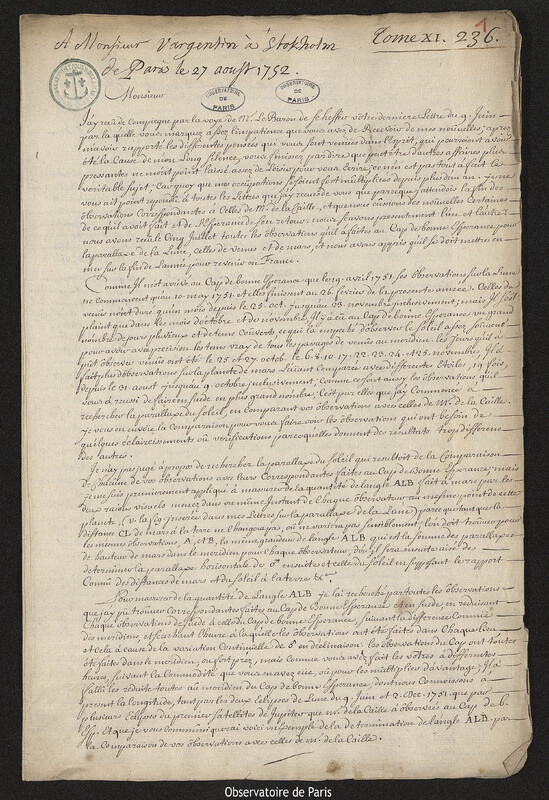 A Monsieur Vargentin à Stokholm Tome XI. 236.
de Paris le 27 aoust 1752.
OBSERVATOIRE DE PARIS
OBSERVATOIRE DE PARIS
Monsieur
J'ay reçu de Compiegne par la voye de Mr. Le Baron de Scheffer votre derniere Lettre du 9. Juin
par laquelle vous marquez assez l'impatience que vous avez de Recevoir de mes nouvelles; après
m'avoir rapporté les differentes pensées qui vous sont venües dans l'esprit, qui pourroient avoir
été la Cause de mon Long silence, vous finissez par dire que peut être d'autres affaires plus
pressantes ne m'ont point laissé assez de Loisir pour vous écrire; ce n'en est pas tout à fait le
veritable sujet; Car quoy que mes occupations se soient fort multipliées depuis plus d'un an, je ne
vous ait point repondu à toutes les Lettres que j'ay reçues de vous que parceque j'attendois la fin des
observations Correspondantes à Celles de Mr. de la Caille, et que nous eussions des nouvelles Certaines
de ce qu'il avoit fait et de l'Esperance de son retour: nous sçavons presentement l'un et l'autre;
nous avons reçu le Cinq Juillet toutes les observations qu'il a faites au Cap de bonne Esperance pour
la parallaxe de la Lune, celles de venus et de mars, et nous avons appris qu'il se doit mettre en
mer sur la fin de L'année pour revenir en France.
Comme il n'est arrivé au Cap de bonne Esperance que le 19. avril 1751. ses observations sur la Lune
ne Commencent qu'au 10. may 1751. et elles finissent au 26. fevrier de la presente année. Celles de
venus n'ont duré qu'un mois depuis le 25. oct. jusqu'au 23. novembre inclusivement; mais il se
plaint que dans les mois d'octobre et de novembre, il y a eu au Cap de bonne Esperance un grand
nombre de jours pluvieux et de tems Couverts, ce qui l'a empesché d'observer le soleil assez souvent
pour avoir avec precision les tems vray de tous les passages de venus au meridien. les Jours qu'il a
pût observer venus ont été le 25 et 27 octob. le 6. 8. 10. 17. 22. 23. 24. et 25. novembre. Il a
fait plus d'observations sur la planete de mars l'aiant Comparée avec differentes Etoiles, 19 fois,
depuis le 31. aoust jusqu'au 9. octobre inclusivement; comme ce sont aussi les observations qu'il
vous a reussi de faire en suede en plus grand nombre; C'est par elles que j'ay Commencé à
rechercher la parallaxe du soleil, en comparant vos observations avec celles de Mr. de la Caille.
Je vous en envoie la Comparaison pour vous faire voir les observations qui ont besoin de
quelques éclaircissements ou verifications parcequelles donnent des resultats trop differens
des autres.
Je n'ay pas jugé à propos de rechercher la parallaxe du soleil qui resultoit de la Comparaison
de Chacune de vos observations avec leurs Correspondantes faites au Cap de Bonne Esperance; mais
je me suis premierement appliqué à m'assurer de la quantité de l'angle ALB fait à mars par les
deux rayons visuels menez dans un même Instant de Chaque observateur au mesme point de cette
planete, (v. la fig. inserée dans mes Lettres sur la parallaxe de la Lune) parceque tant que la
distance CL de mars à la terre ne Changera pas, ou ne variera pas sensiblement, l'on doit trouver pour
les mesmes observations, A, et B, la même grandeur de l'angle ALB qui est la somme des parallaxes
de hauteur de mars dans le meridien pour Chaque observateur, dont il sera ensuite aisé de
determiner la parallaxe horisontale de ♂ ensuite et celle du soleil en supposant les rapport
Connû des distances de mars et du soleil à la terre &c.
Pour m'assurer de la quantité de L'angle ALB je l'ai recherché par toutes les observations
que j'ay pû trouver Correspondantes faites au Cap de Bonne Esperance et en suede, en reduisant
Chaque observations de suede à celle du Cap de bonne Esperance, suivant la difference Connüe
des meridiens, et sçachant l'heure à laquelle les observations ont été faites dans Chaque lieu
et cela à cause de la variation Continuelle de ♂ en declinaison. les observations du Cap ont toutes
été faites dans le meridien, ou fort prez, mais comme vous avez fait les vôtres à differentes
heures, suivant la Commodité que vous m'avez eüe, ou pour les multiplier d'avantage; il a
fallu les reduire toutes au meridien du Cap de bonne Esperance, dont nous Connoissons à
present la longitude, tant par les deux éclipses de Lune du 9. Juin et 2. Dec. 1751. que par
plusieurs éclipses du premier satellites de Jupiter que Mr. de la Caille a observées au Cap de b.
Esp. Et que je vous Communiquerai voici un exemple de la determination de l'angle ALB par
la Comparaison de vos observations avec celles de Mr. de la Caille.
Observatoire de Paris